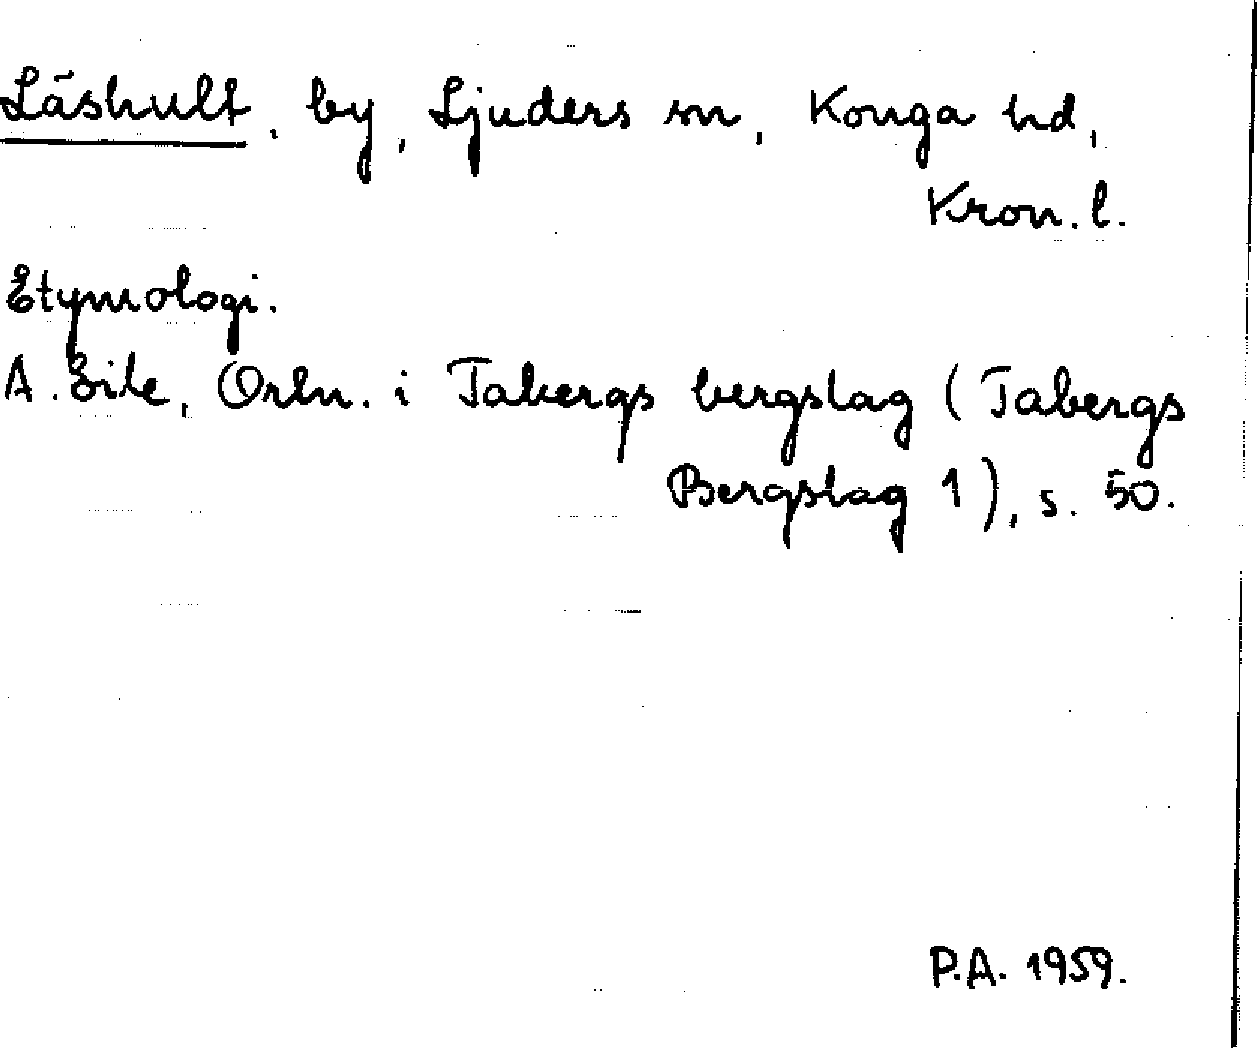 Läshult, by, Ljuders sn, Konga hd,
Kron. l.
Etymologi.
A. Ejle, Ortn. i Tabergs bergslag (Tabergs
Bergslag 1), s. 50.
P.A. 1959.